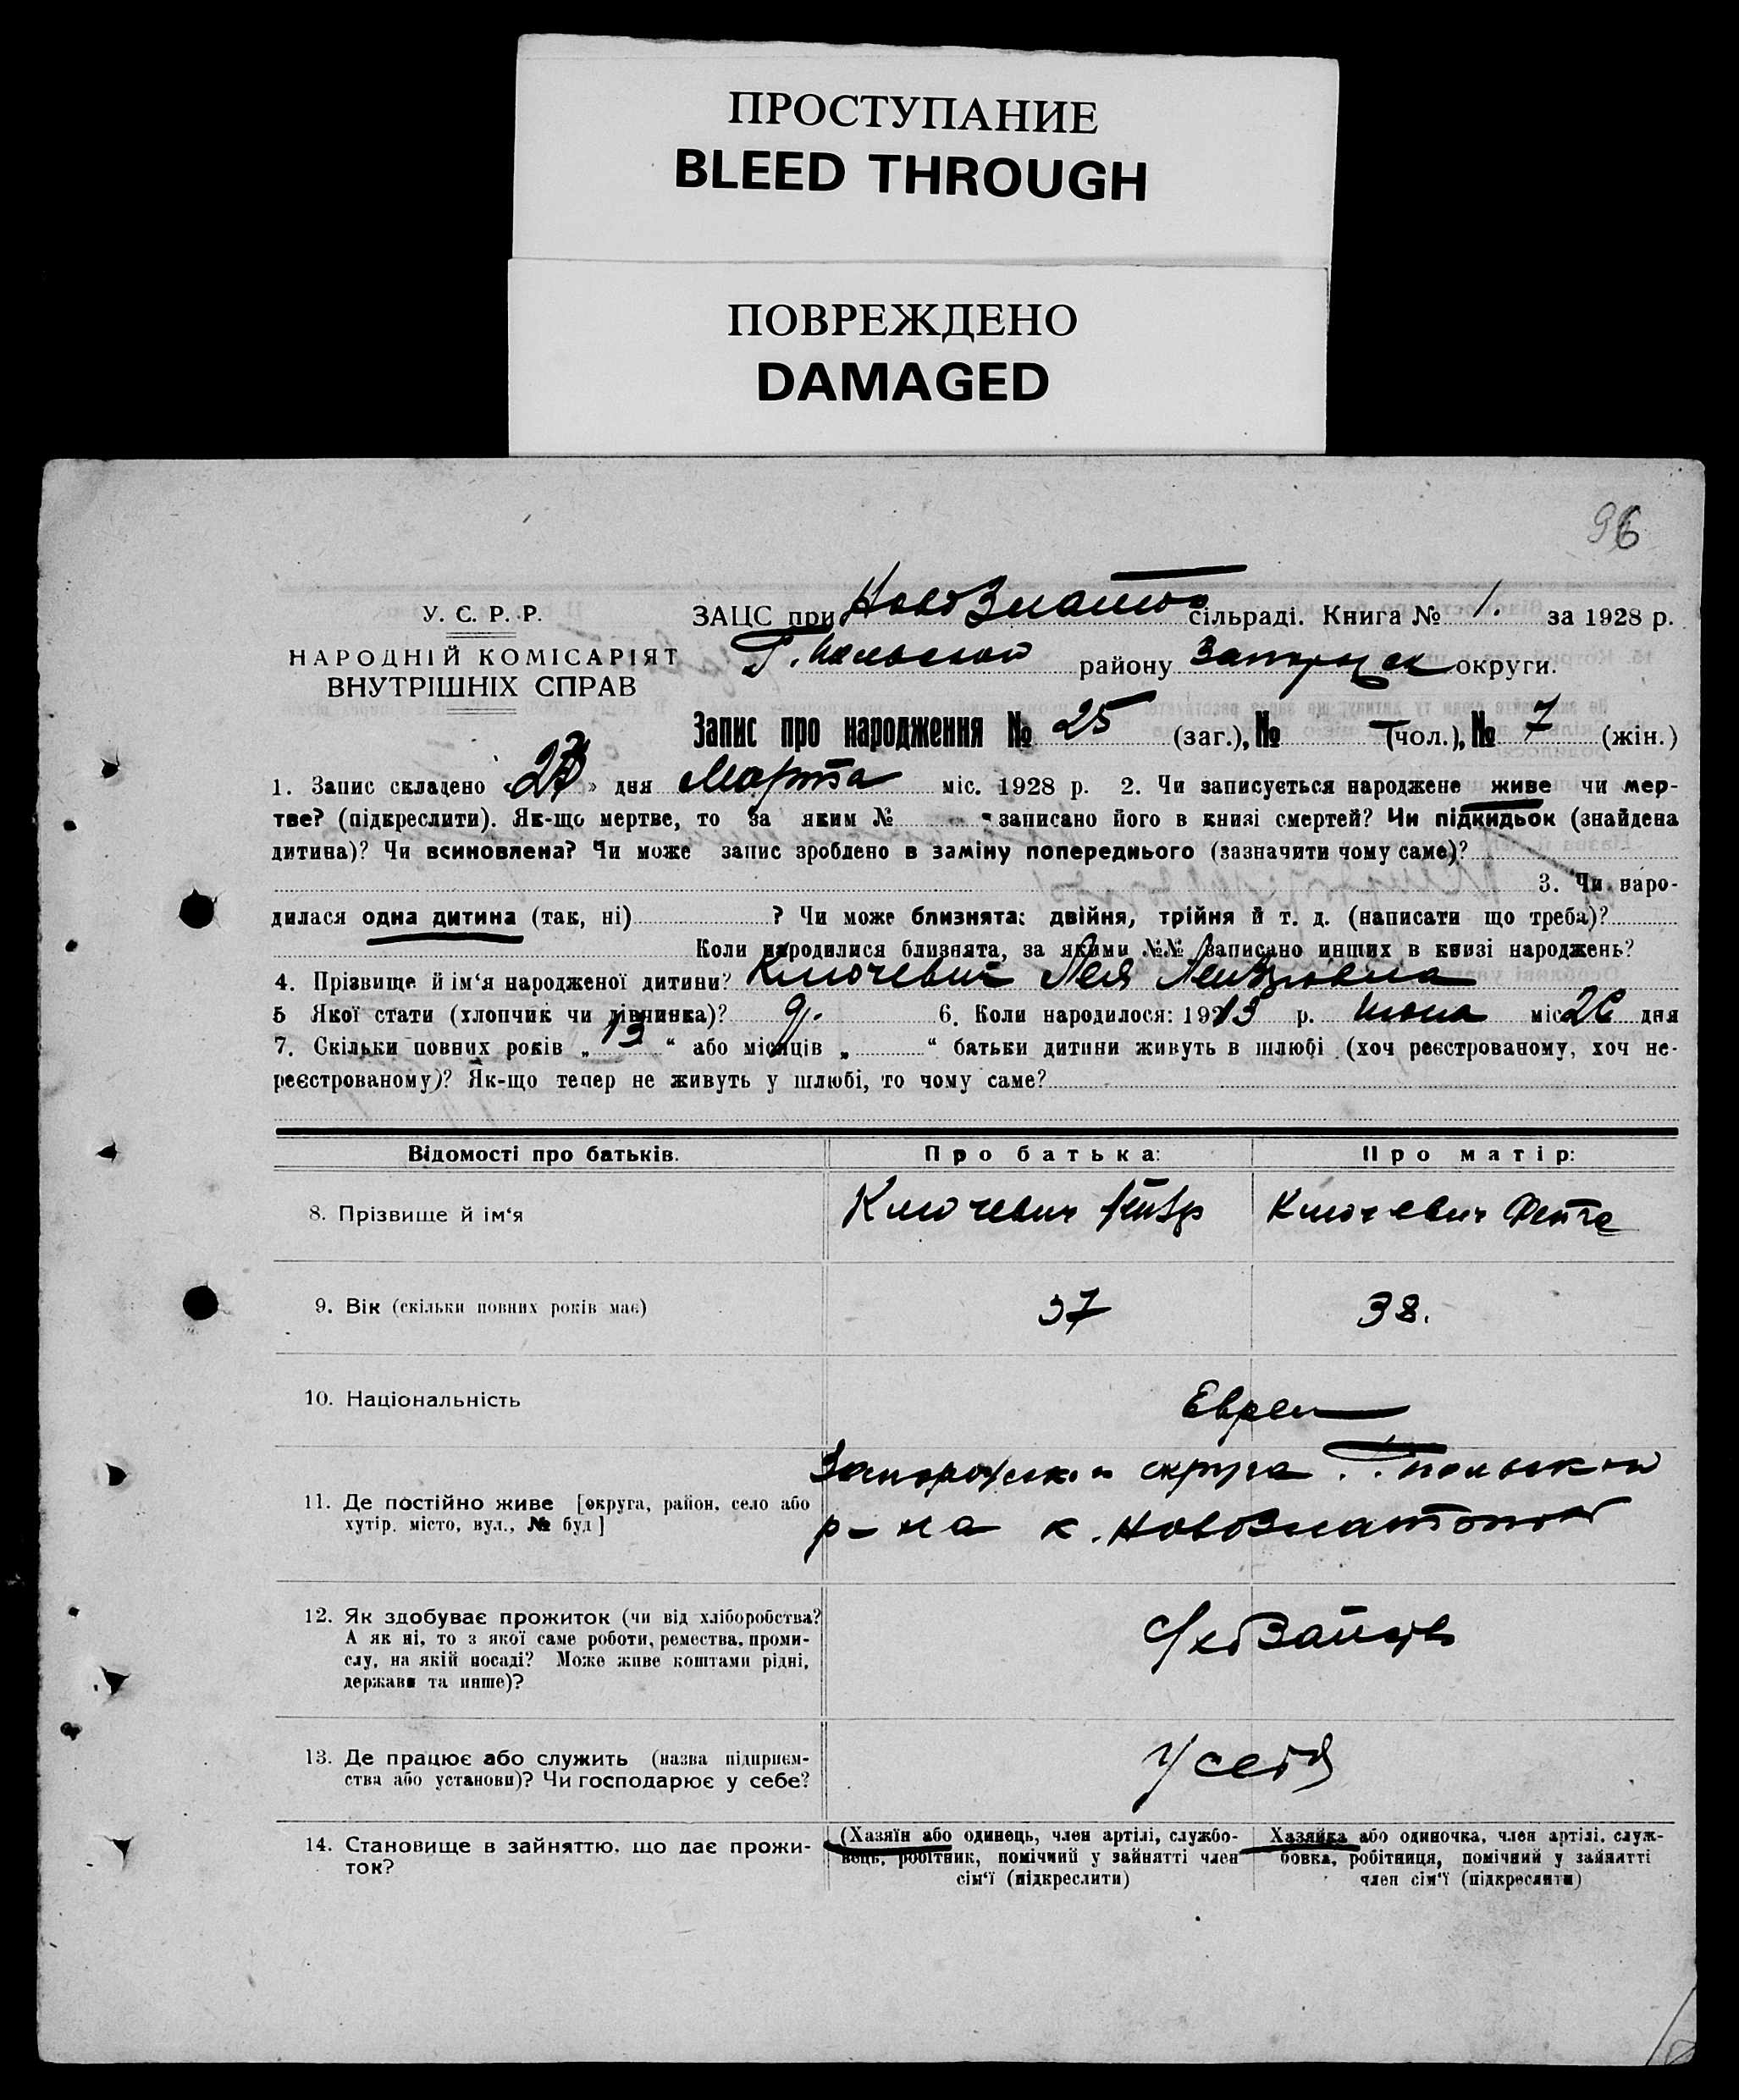 ПРОСТУПАНИЕ
BLEED THROUGH
ПОВРЕЖДЕНО
DAMAGED
96
У. С. Р. Р.
НАРОДНІЙ КОМІСАРІЯТ
ВНУТРІШНІХ СПРАВ
ЗАЦС при НовоЗлатоп сільраді. Книга № 1. за 1928 р.
Г. польской району Запорожск округи.
Запис про народження № 25 (заг.), № — (чол.), № 7 (жін.)
1. Запис складено « » дня Марта міс. 1928 р. 2. Чи записується народжене живе чи мер-
тве? (підкреслити). Як-що мертве, то за яким № записано його в книзі смертей? Чи підкидьок (знайдена
дитина)? Чи всиновлена? Чи може запис зроблено в заміну попереднього (зазначити чому саме)?
3. Чи наро-
дилася одна дитина (так, ні) ? Чи може близнята: двійня, трійня й т. д. (написати що треба)?
Коли народилися близнята, за якими №№ записано инших в книзі народжень?
4. Прізвище й ім‘я народженої дитини? Ключевич Лея Лейзровна
5 Якої стати (хлопчик чи дівчинка)? д. 6. Коли народилося: 1913 р. Июня міс 26 дня
7. Скільки повних років „ 13 “ або місяців „ “ батьки дитини живуть в шлюбі (хоч реєстрованому, хоч не-
реєстрованому)? Як-що тепер не живуть у шлюбі, то чому саме?
Відомості про батьків. Про батька: Про матір:
8. Прізвище й ім‘я Ключевич Лейзр Ключевич
9. Вік (скільки повних років має) 37 38.
10. Національність Евреи
11. Де постійно живе [округа, район, село або
хутір, місто, вул., № буд]
Запорожской округа Г. польской
р-на к. НовоЗлатополь
12. Як здобуває прожиток (чи від хліборобства?
А як ні, то з якої саме роботи, ремества, проми-
слу, на якій посаді? Може живе коштами рідні,
держави та инше)?
С/хозайств
13. Де працює або служить (назва підприєм-
ства або установи)? Чи господарює у себе?
У себя
14. Становище в зайняттю, що дає прожи-
ток?
(Хазяїн або одинець, член артілі, службо-
вець, робітник, помічний у зайнятті член
сім‘ї (підкреслити)
Хазяйка або одиночка, член артілі, служ-
бовка, робітниця, помічний у зайнятті
член сім‘ї (підкреслити)